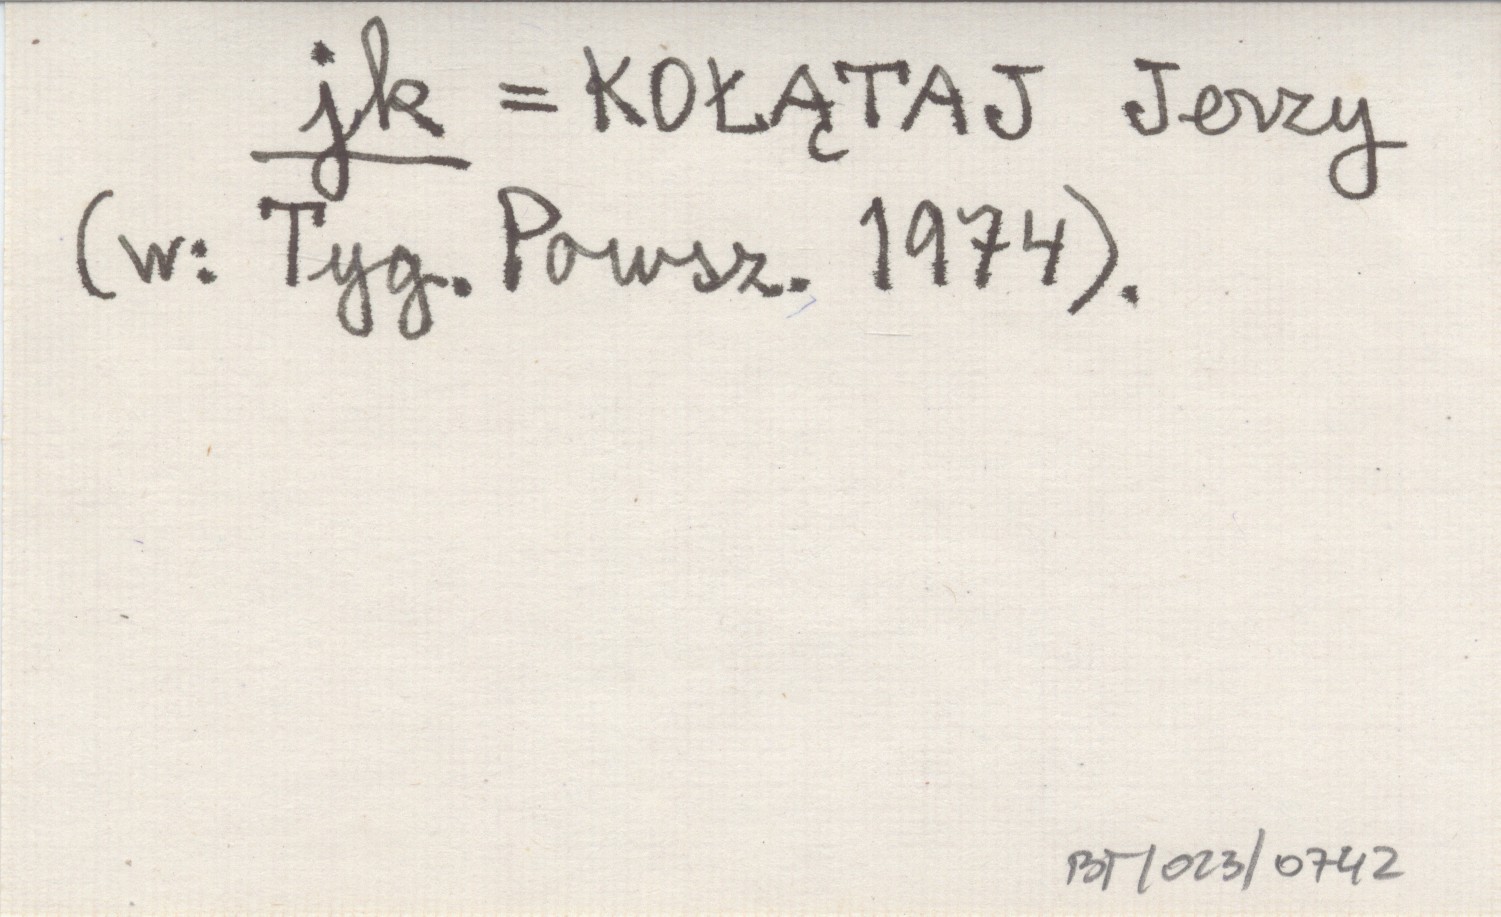 jk = KOŁĄTAJ Jerzy
(w: Tyg. Powsz. 1974).
BT/023/0742